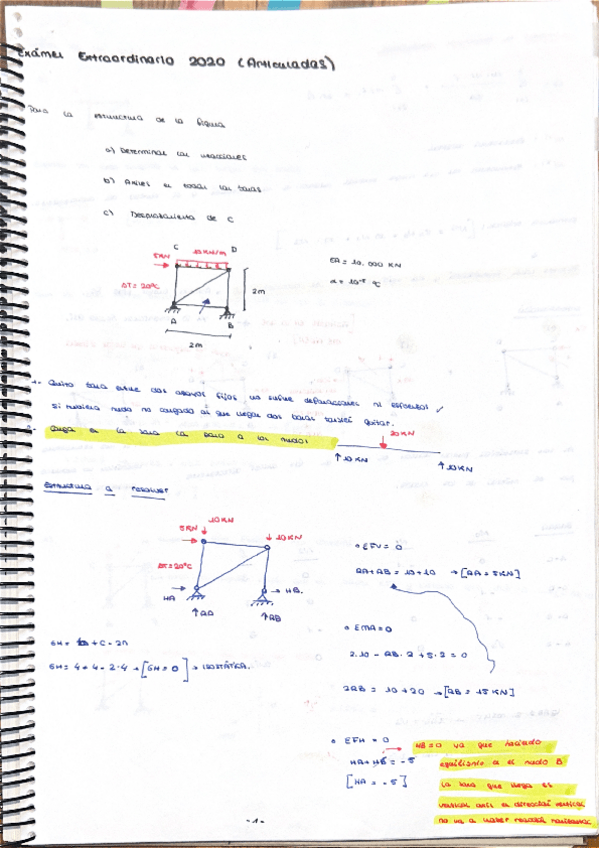 Exámen Extraordinario 2020 (Articuladas)
Para la estructura de la figura
a) Determinar las reacciones
b) Axiles en todas las barras
c) Desplazamiento de C
C
10 KN/m
D
5KN
ΔT= 20ºC
2m
A
B
2m
EA = 10.000 KN
α = 10⁻⁵ ºC
1.- Quito barra entre dos apoyos fijos, no sufre deformaciones ni esfuerzos ✓
Si hubiera nudo no cargado al que llegan dos barras también quitar.
Carga en la barra la paso a los nudos
20KN
↑ 10 KN
↑ 10 KN
Estructura a resolver
10KN
5KN
10KN
ΔT=20ºC
HA
HB.
↑RA
↑RB
GH = b + C - 2n
GH = 4 + 4 - 2·4 → [GH = 0] → ISOSTÁTICA.
• ΣFV = 0
RA+RB = 10+10 → [RA = 5KN]
• ΣMA=0
2·10 - RB·2 + 5·2 = 0
2RB = 10+20 → [RB = 15 KN]
• ΣFH = 0
HA+HB = -5
[HA = -5]
HB=0 ya que haciendo
equilibrio a el nudo B
la barra que llega es
vertical axil en dirección vertical
no va a haber reacción horizontal
-1-